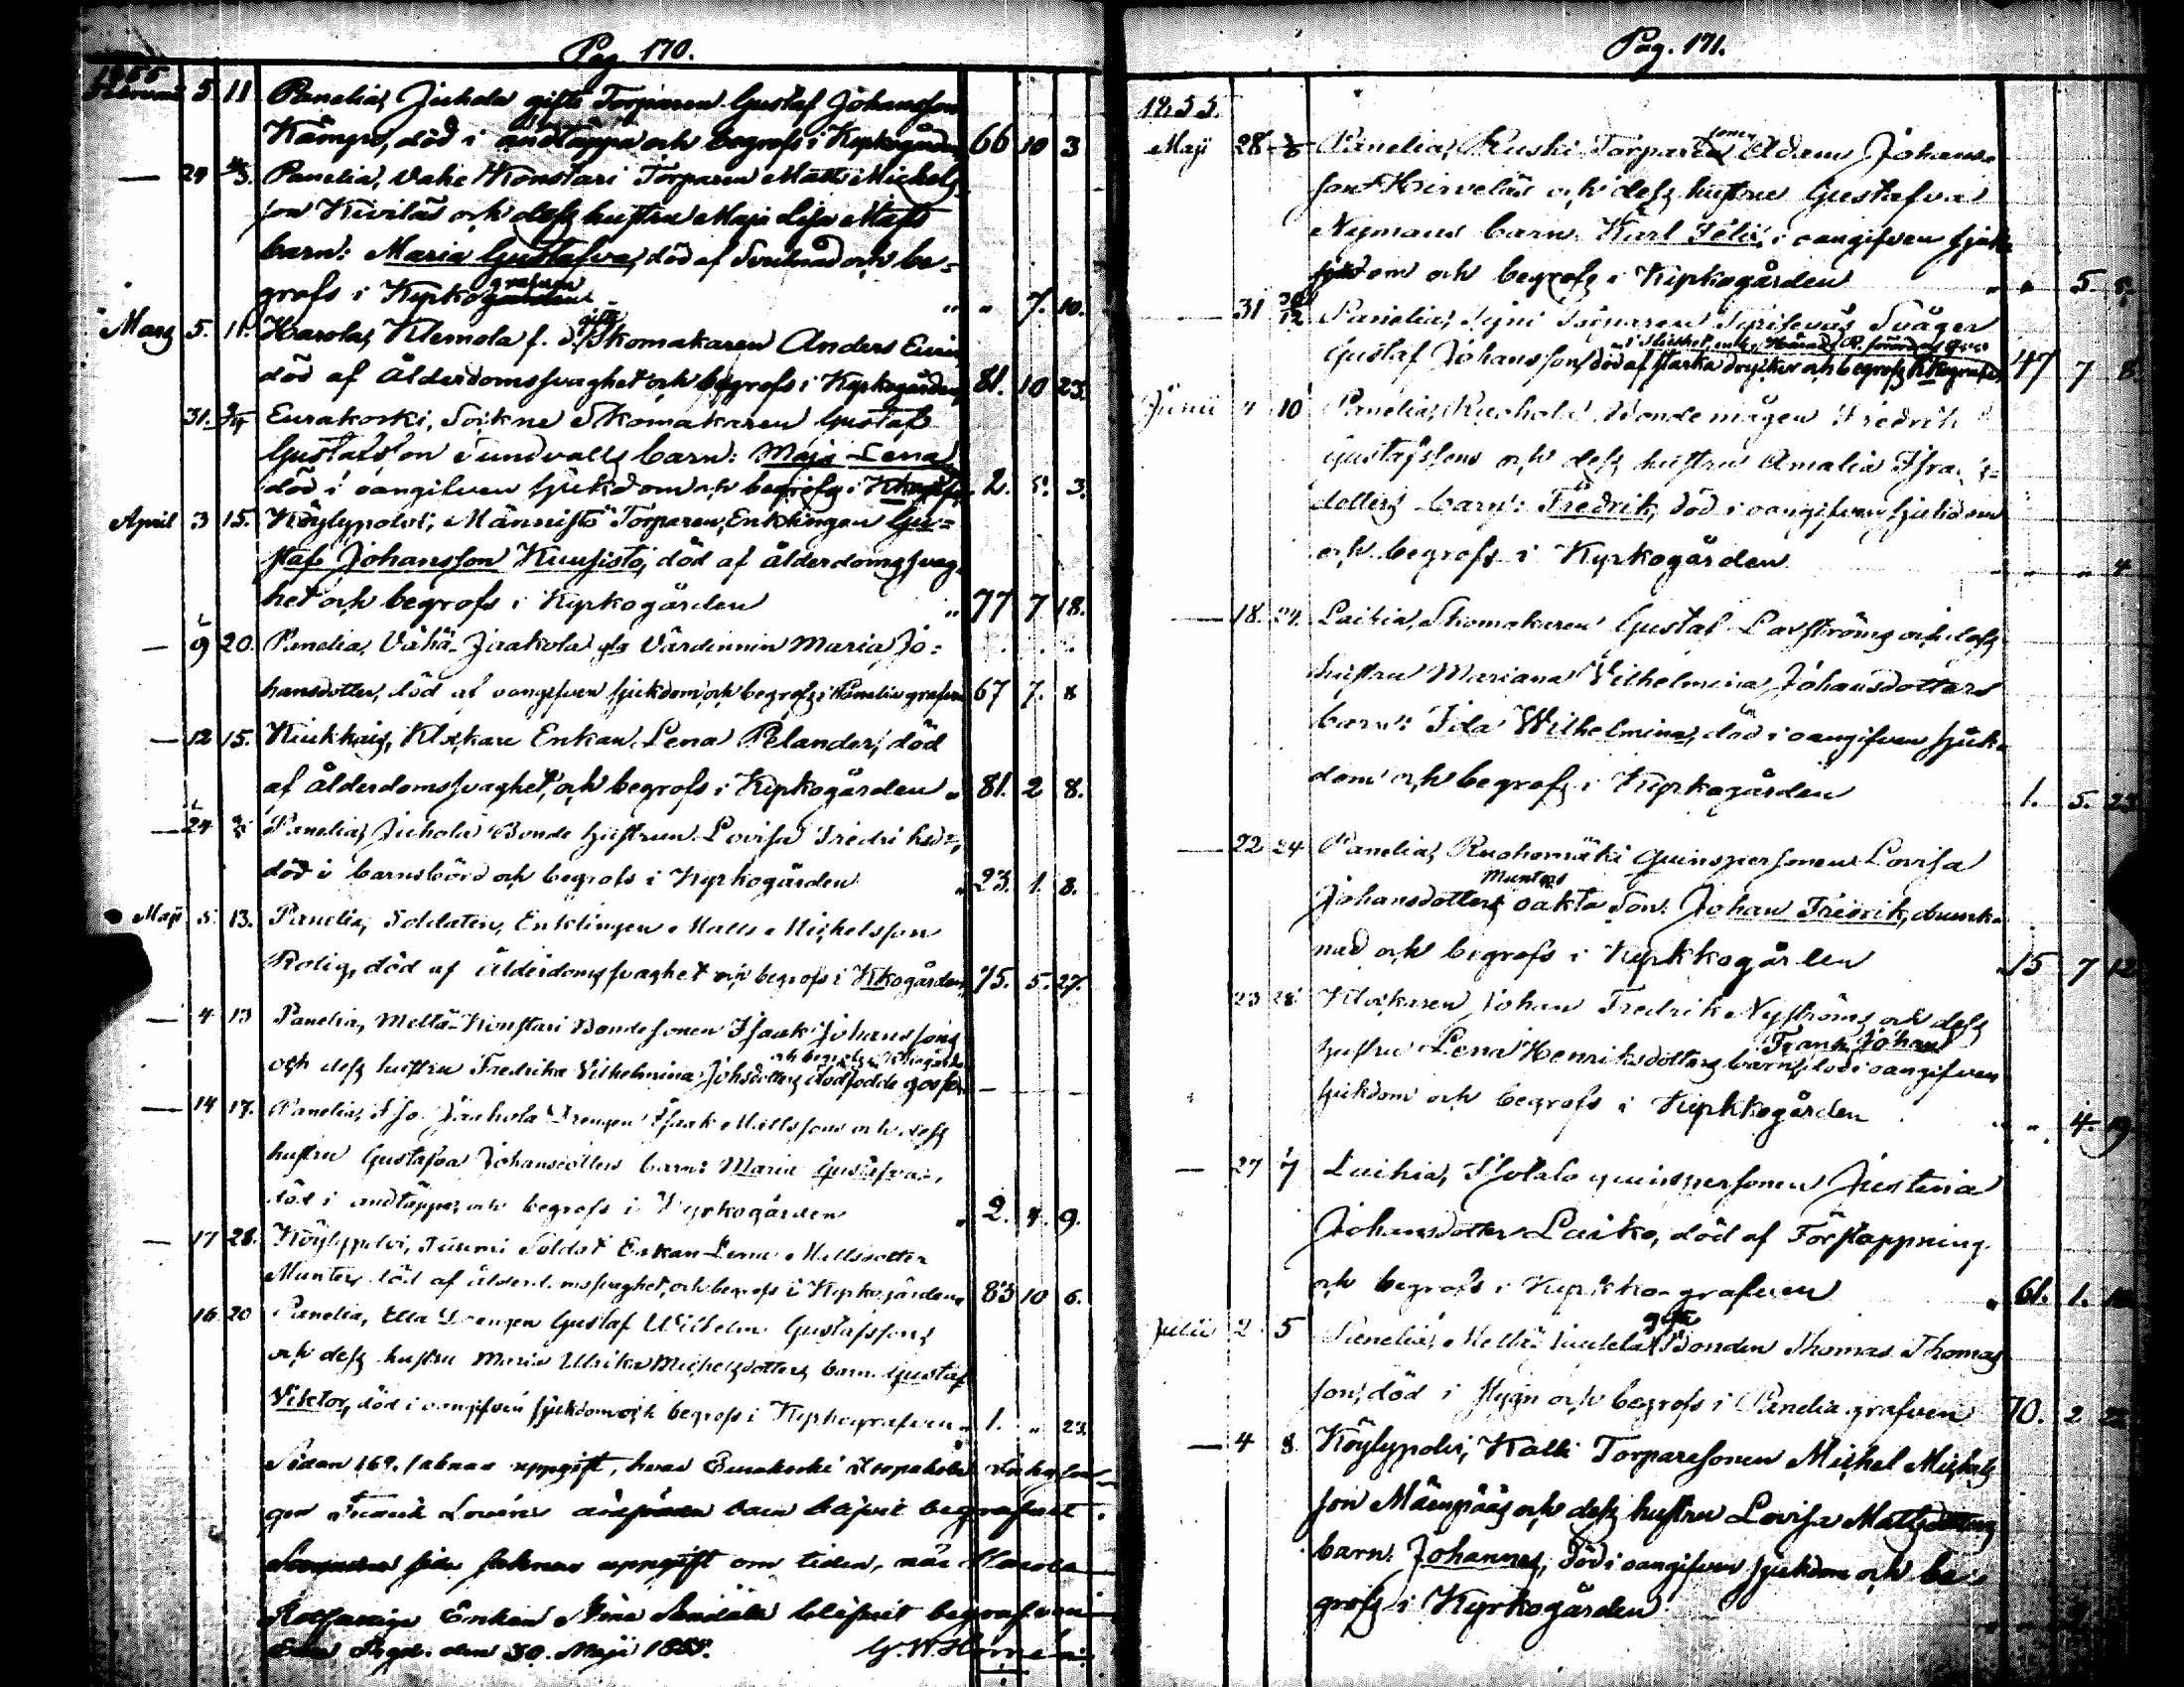 Pag. 170.
1855
Februari 5 11 Panelia, Juhola gifte Torparen Gustaf Johansson
Kämpe, död i andtäppa och begrofs i Kyrkogården 66 10 3
— 24 Panelia, Vahe Konstari Torparen Matts Michels-
son Kiviläs och dess hustru Maja Lisa Matts
barn: Maria Gustafva, död af Svullnad och be-
grofs i Kyrkografven " " 7. 10.
Mars 5. 11. Harola, Klemola f. d. gifte Skomakaren Anders Eurin
död af Ålderdomssvaghet och begrofs i Kyrkogården 81. 10 23.
31. Eurakoski, Soikne Skomakaren Gustaf
Gustafsson Sundvalls barn: Maja Lena,
död i oangifven sjukdom och begrofs i 2. 5. 3.
April 3 15. Köylypolvi, Männistö Torparen, Enklingen Gu-
staf Johansson Kuusisto, död af ålderdomssvag-
het och begrofs i Kyrkogården " 77 7 18.
— 9 20. Panelia, Vähä-Jaakola Värdinnin Maria Jo-
hansdotter, död af oangifven sjukdom och begrofs i Panelia grafven 67 7. 8
— 12 15. Kiukkais, Klockare Enkan Lena Pelander, död
af ålderdomssvaghet, och begrofs i Kyrkogården " 81. 2 8.
— 24 Panelia, Juhola Bonde hustrun Lovisa Fredriksd:r,
död i barnsbörd och begrofs i Kyrkogården " 23. 1. 8.
Maji 5. 13. Panelia, Soldaten, Enklingen Matts Michelsson
Rolig, död af ålderdomssvaghet och begrofs i Kkogården 75. 5. 27.
— 4 13 Panelia, Mellä-Konstari Bondesonen Isaak Johanssons
och begrofs i Kkogården
och dess hustru Fredrika Vilhelmina Johsdotters dödfödde gosse — — —
— 14 17. Panelia, Iso Jaakola Drengen Isaak Mattssons och dess
hustru Gustafva Johansdotters barn: Maria Gustafva,
död i andtäppa, och begrofs i Kyrkogården " 2. 4. 9.
— 17 28. Köylypolvi, Tuomi Soldat Enkan Lena Mattsdotter
Munter, död af ålderdomssvaghet, och begrofs i Kyrkogården 83 10 6.
16 20 Panelia, Ella Drengen Gustaf Wilhelm Gustafssons
och dess hustru Maria Ulrika Michelsdotters barn Gustaf
Viktor, död i oangifven sjukdom och begrofs i Kyrkografven " 1. " 23.
Sidan 169. saknas uppgift, hvar Eurakoski
gen Fredrik Lovén barn blifvit begrafvet.
sida saknas uppgift om tiden, när Harola
Enkan blifvit begrafven
den 30. Maji 1855. G. W.
Pag. 171.
1855.
Maji 28 Panelia, Ruski Torparesonen Adam Johans-
son Hirveläs och dess hustru Gustafva
Nymans barn: Karl Felix, i oangifven sjuk-
dom och begrofs i Kyrkogården " " 5
31 Panelia, Svåger
Gustaf Johansson, död af starka drycker och begrofs 47 7 8.
Junii 4 10 Panelia, Ruohola Bondemågen Fredrik
Gustafssons och dess hustru Amalia Israels-
dotters barn: Fredrik, död i oangifven sjukdom
och begrofs i Kyrkogården " " 4
— 18. 24. Laihia, Skomakaren Gustaf Lovströms och dess
hustru Mariana Vilhelmina Johansdotters
barn: Ida Wilhelmina, död i oangifven sjuk-
dom och begrofs i Kyrkogården 1. 5. 23
— 22 24 Panelia, Ruohomäki Qvinspersonen Lovisa
Munters
Johansdotters oäkta Son: Johan Fredrik, drunk-
nad och begrofs i Kyrkkogården 15 7 12
23 28 Klockaren Johan Fredrik Nyströms och dess
Frans Johan
hustru Lena Henriksdotters barn, död i oangifven
sjukdom och begrofs i Kyrkkogården " " 4. 19
— 27 Laihia, Isotalo qvinspersonen Justina
Johansdotter Laiko, död af Förstoppning
och begrofs i Kyrkko-grafven " 61. 1.
Julii 2 5 Panelia, Mellä gifte Bonden Thomas Thomas-
son, död i Styng och begrofs i Panelia grafven 70. 2 22
— 4 8. Köylypolvi, Kalli Torparesonen Michel Michels-
son Mäenpääs och dess hustru Lovisa Mattsdotters
barn: Johannes, död i oangifven sjukdom och be-
grofs i Kyrkogården